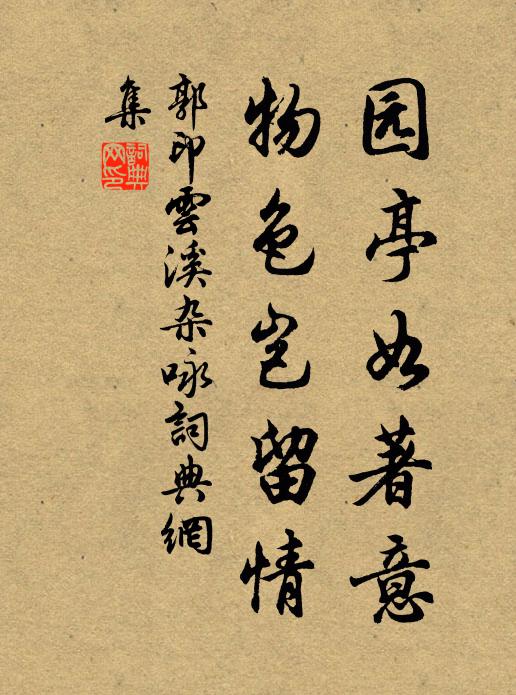 园亭如著意
物色岂留情
郭印雲溪杂咏詞典網
集
詞典網印